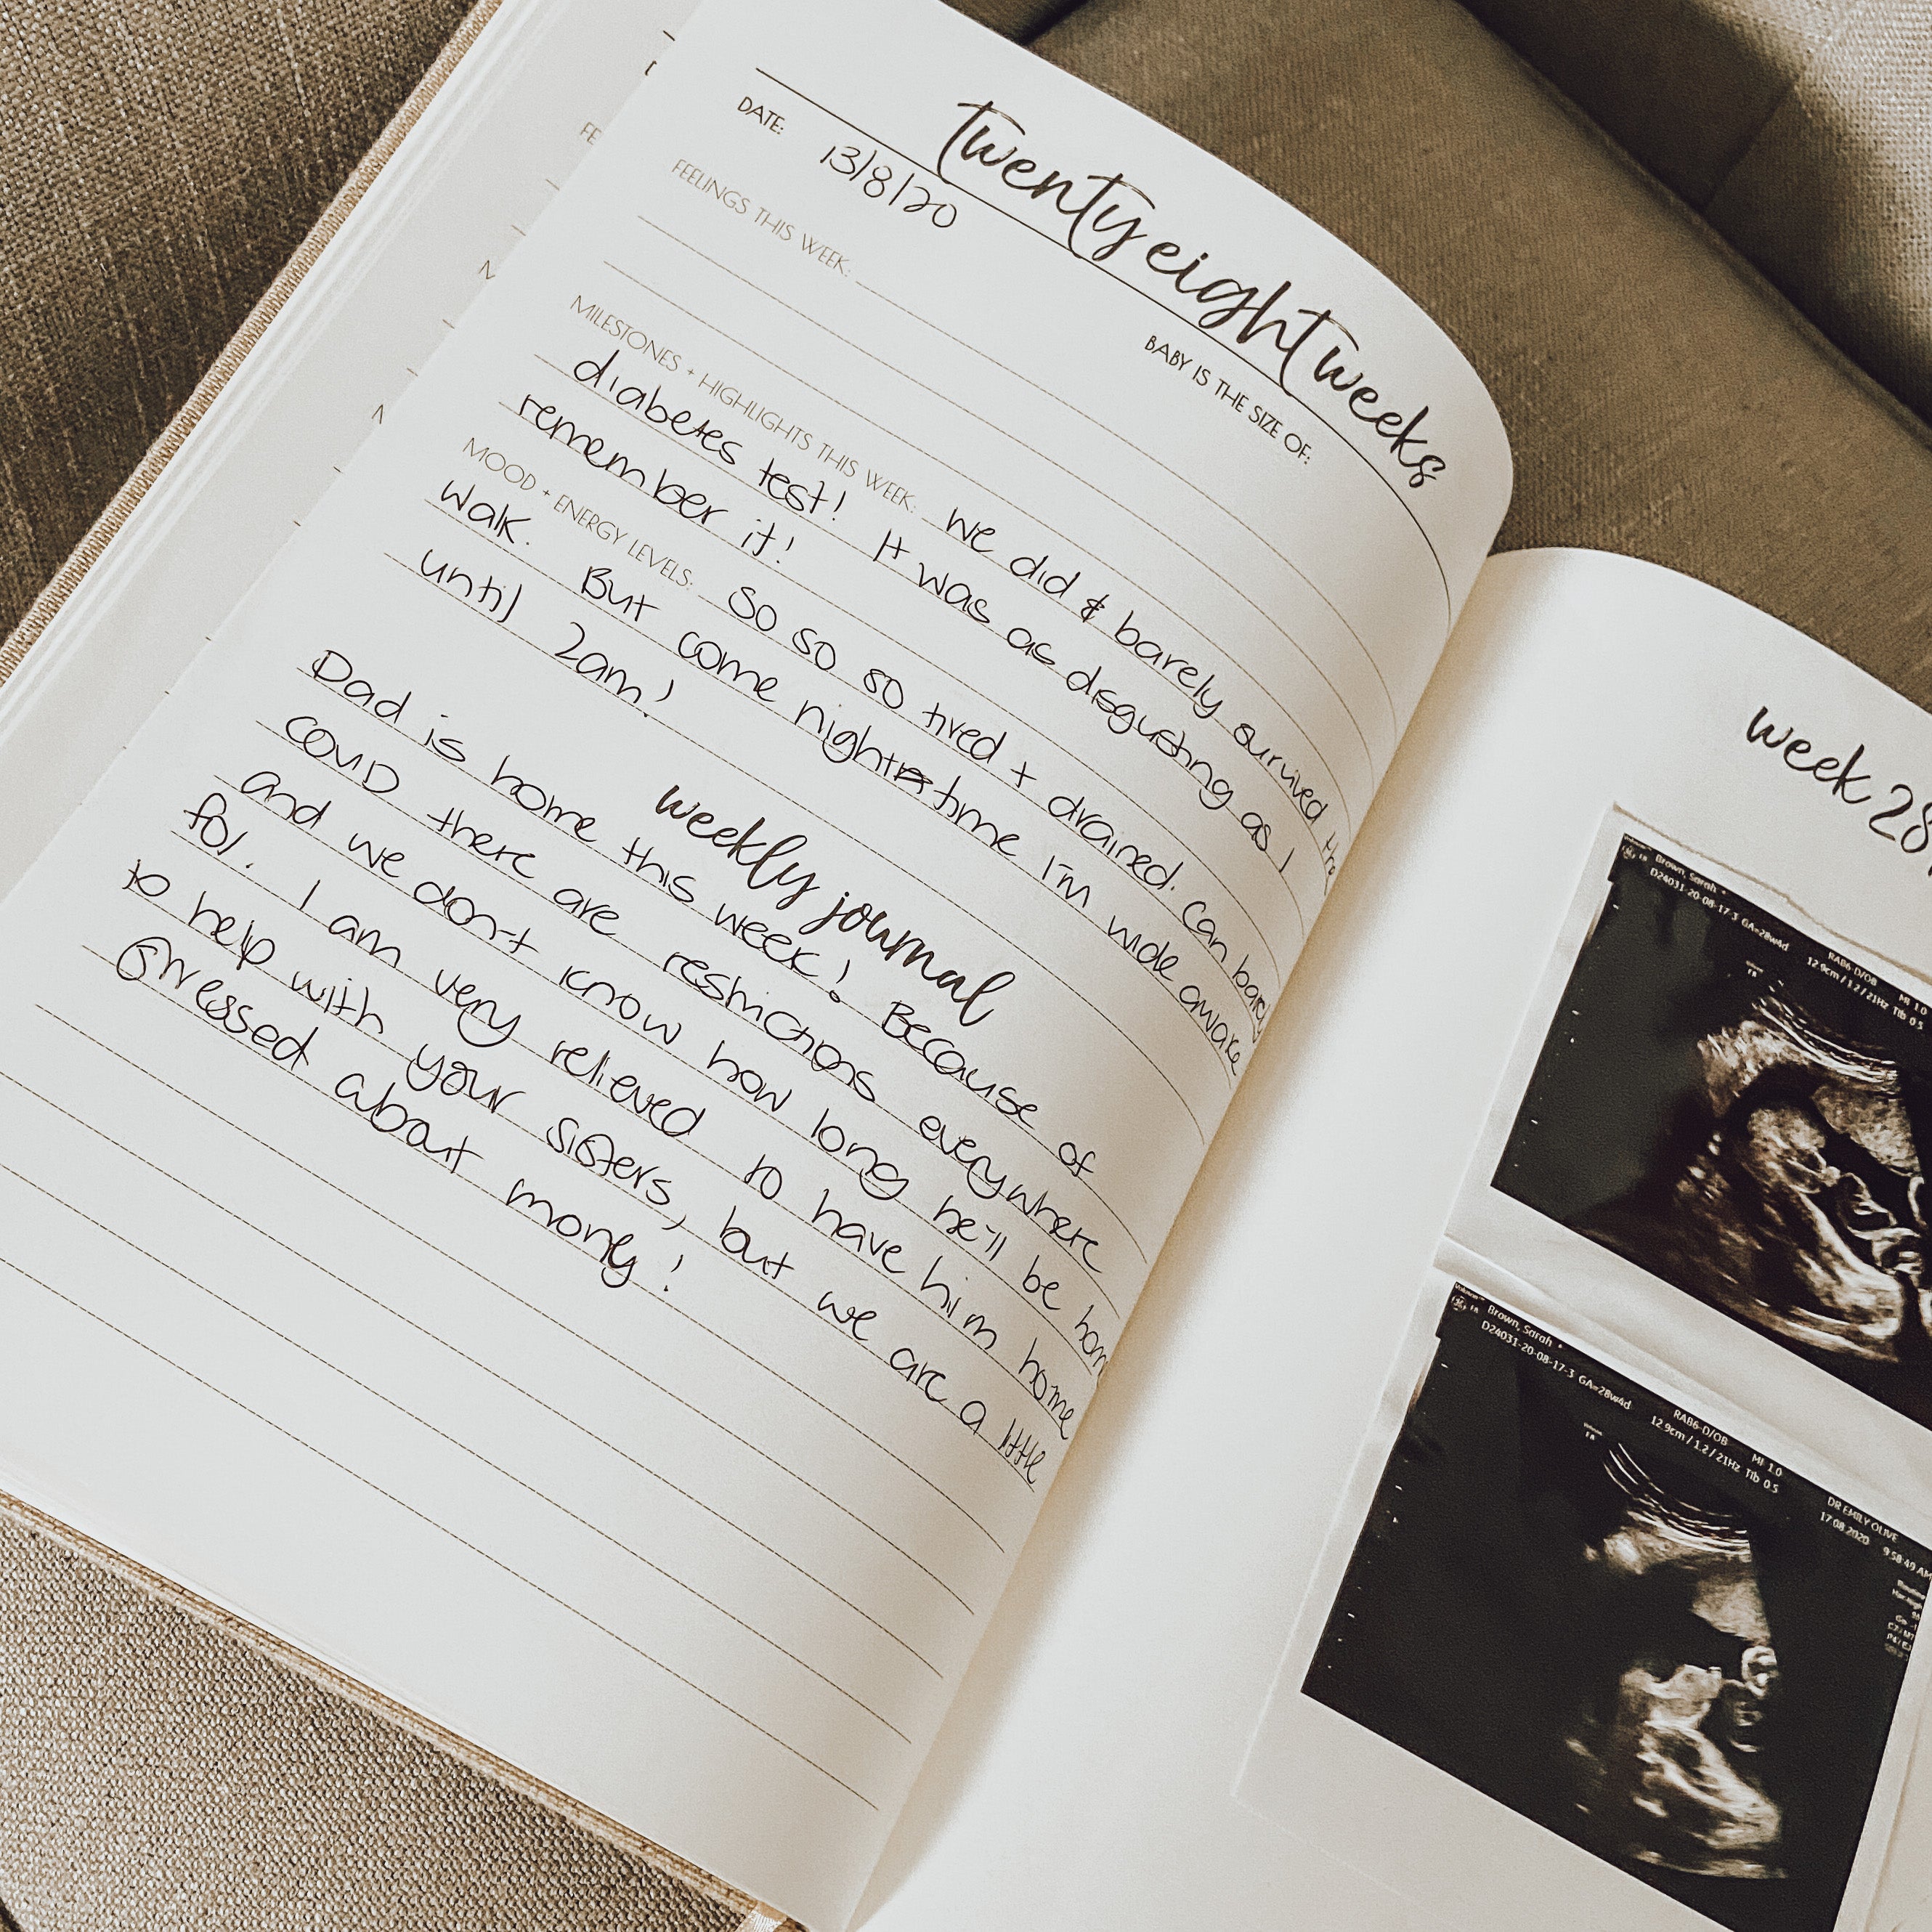 twenty eight weeks
DATE: 13/8/20
BABY IS THE SIZE OF:
FEELINGS THIS WEEK:
MILESTONES + HIGHLIGHTS THIS WEEK: We did & barely survived the
diabetes test! It was as disgusting as I
remember it!
MOOD + ENERGY LEVELS: So so so tired + drained. Can barely
walk. But come night time I'm wide awake
until 2am!
weekly journal
Dad is home this week! Because of
COVID there are restrictions everywhere
and we don't know how long he'll be home
for. I am very relieved to have him home
to help with your sisters, but we are a little
stressed about money!
week 28
Brown, Sarah
D24031-20-08-17-3 GA=28w4d
RAB6-D/OB MI 1.0
12.9cm / 1.2 / 21Hz Tib 0.5
Brown, Sarah
D24031-20-08-17-3 GA=28w4d
RAB6-D/OB MI 1.0
12.9cm / 1.2 / 21Hz Tib 0.5
DR EMILY OLIVE
17.08.2020 9:58:49 AM